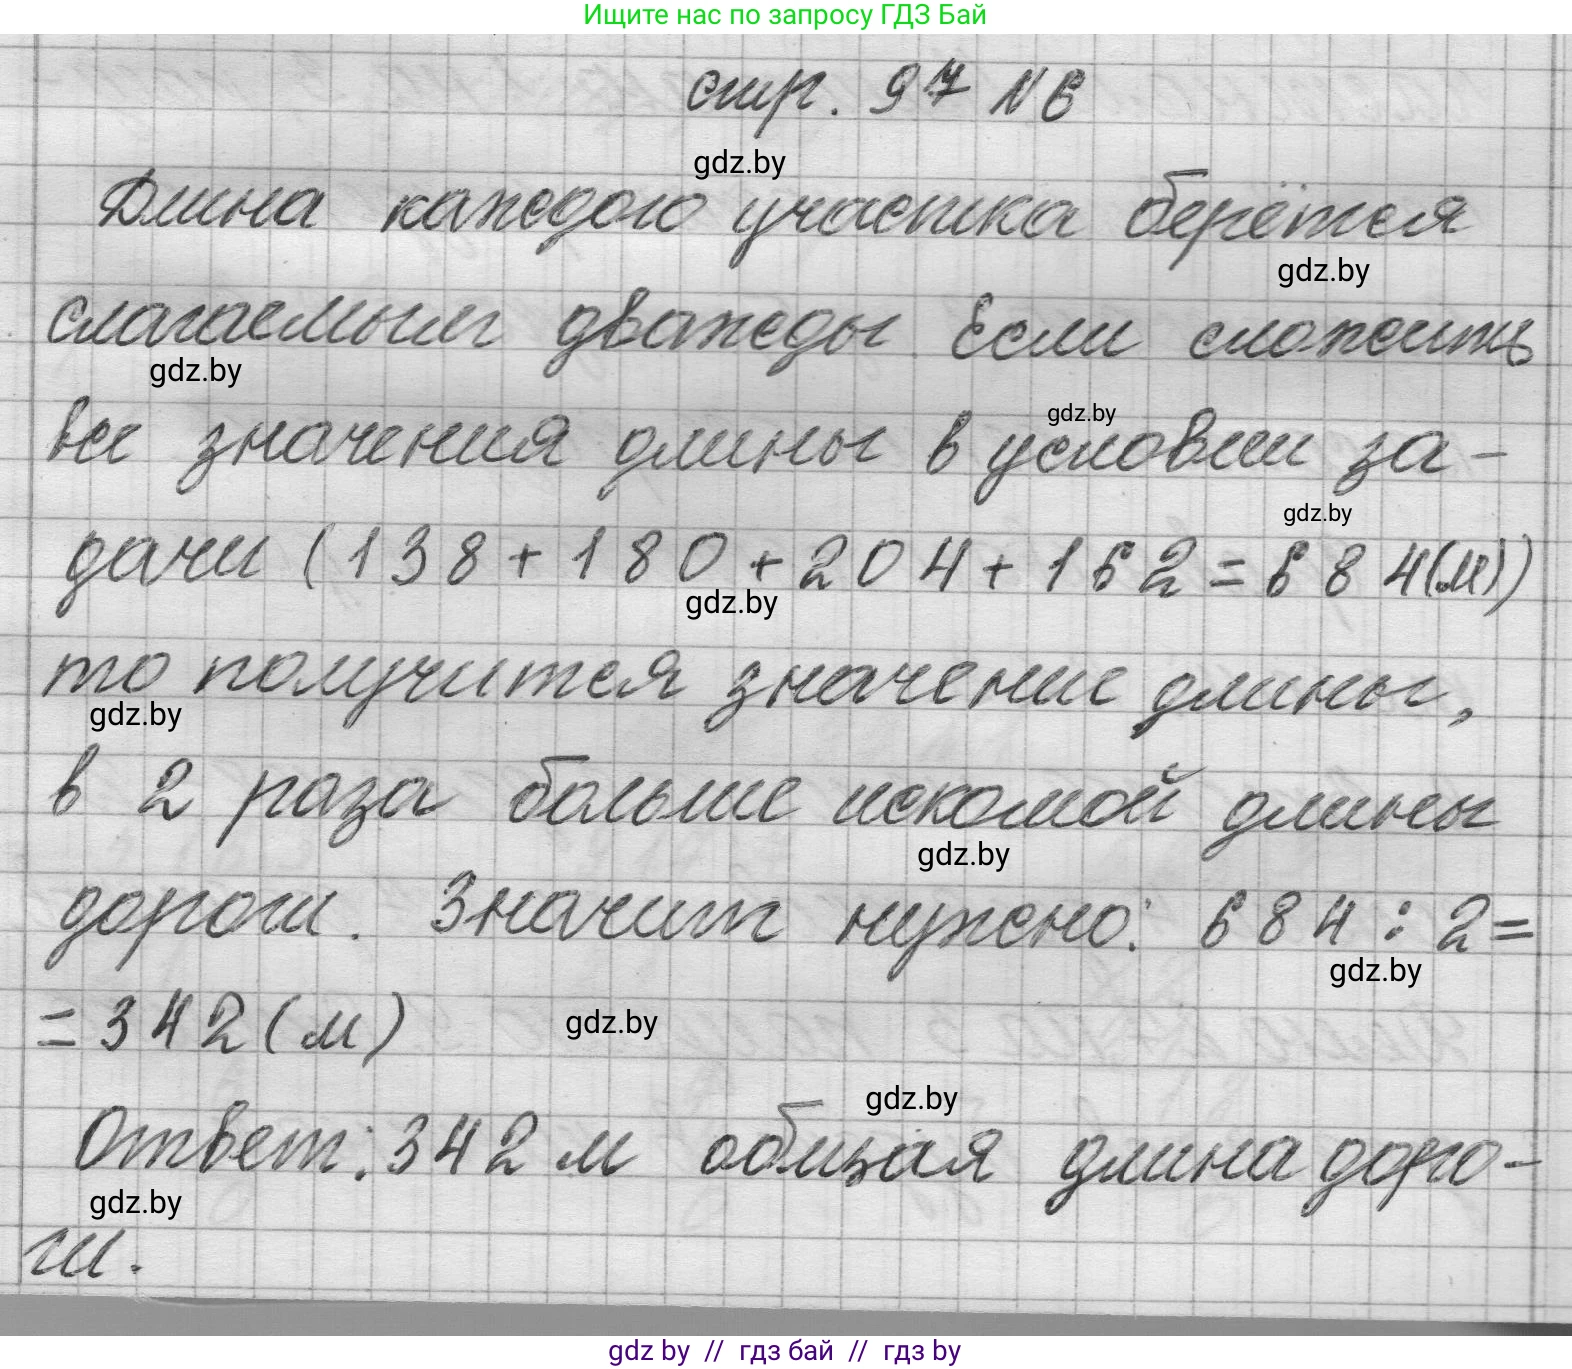 Ищите нас по запросу ГДЗ Бай
стр. 97 N 6
gdz.by
Длина каждого участка берётся
gdz.by
слагаемым дважды Если сложить
gdz.by
все значения длины в условии за-
gdz.by
gdz.by
дачи (138+180+204+162=684(м))
gdz.by
то получится значение длины,
gdz.by
в 2 раза больше искомой длины
gdz.by
дороги. Значит нужно: 684:2=
gdz.by
=342(м)
gdz.by
gdz.by
Ответ: 342 м общая длина доро-
gdz.by
ги.
gdz.by // гдз бай // gdz by